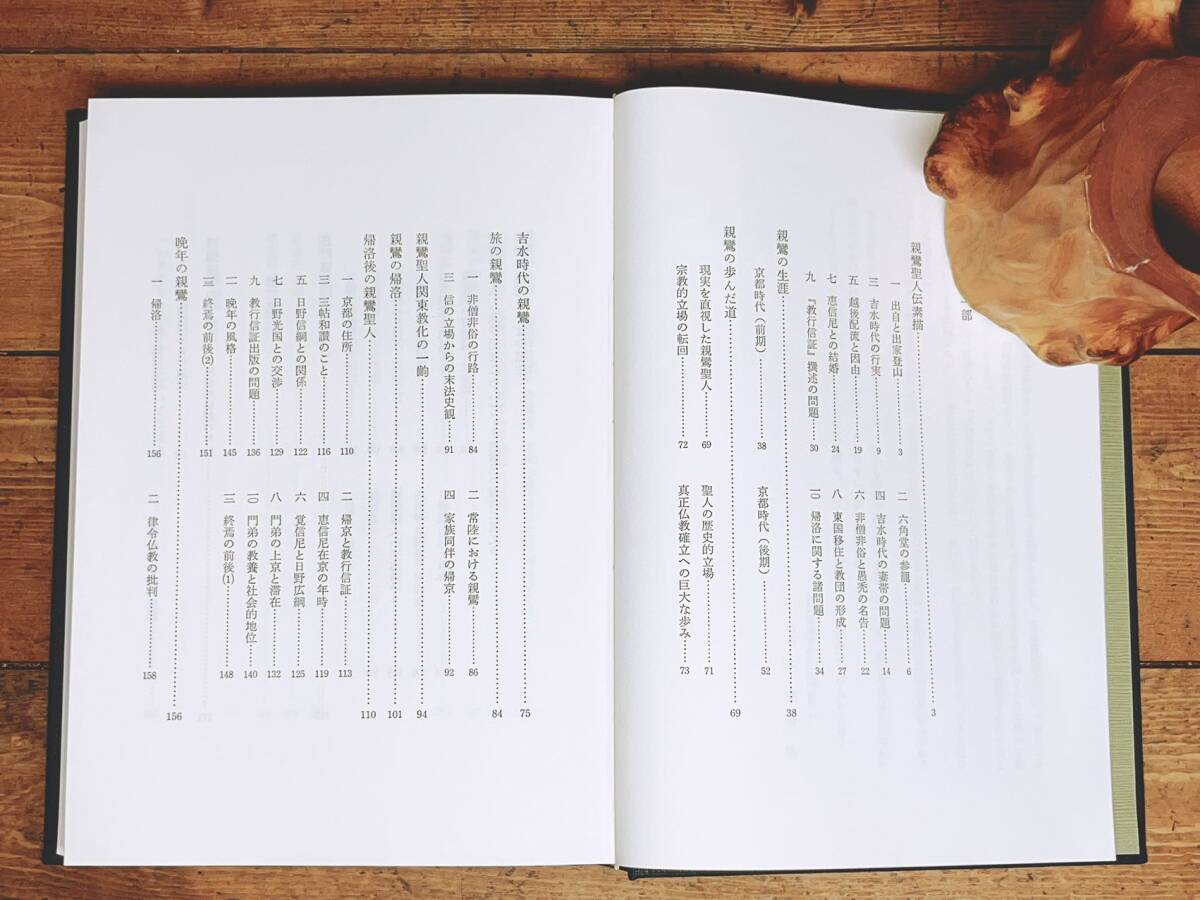 一部
親鸞聖人伝素描……3
一 出自と出家登山……3
二 六角堂の参籠……6
三 吉水時代の行実……9
四 吉水時代の妻帯の問題……14
五 越後配流と因由……19
六 非僧非俗と愚禿の名告……22
七 恵信尼との結婚……24
八 東国移住と教団の形成……27
九 『教行信証』撰述の問題……30
一〇 帰洛に関する諸問題……34
親鸞の生涯……38
京都時代（前期）……38
京都時代（後期）……52
親鸞の歩んだ道……69
現実を直視した親鸞聖人……69
聖人の歴史的立場……71
宗教的立場の転回……72
真正仏教確立への巨大な歩み……73
吉水時代の親鸞……75
旅の親鸞……84
一 非僧非俗の行路……84
二 常陸における親鸞……86
三 信の立場からの末法史観……91
四 家族同伴の帰京……92
親鸞聖人関東教化の一齣……94
親鸞の帰洛……101
帰洛後の親鸞聖人……110
一 京都の住所……110
二 帰京と教行信証……113
三 三帖和讃のこと……116
四 恵信尼在京の年時……119
五 日野信綱との関係……122
六 覚信尼と日野広綱……125
七 日野光国との交渉……129
八 門弟の上京と滞在……132
九 教行信証出版の問題……136
一〇 門弟の教養と社会的地位……140
一一 晩年の風格……145
一二 終焉の前後(1)……148
一三 終焉の前後(2)……151
晩年の親鸞……156
一 帰洛……156
二 律令仏教の批判……158